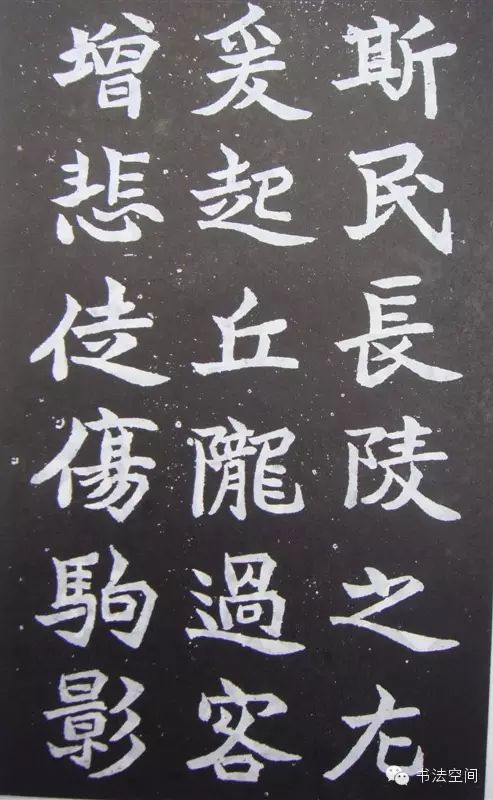 斯民長陵之尢
爰起丘隴過客
增悲徒傷駒影
书法空间